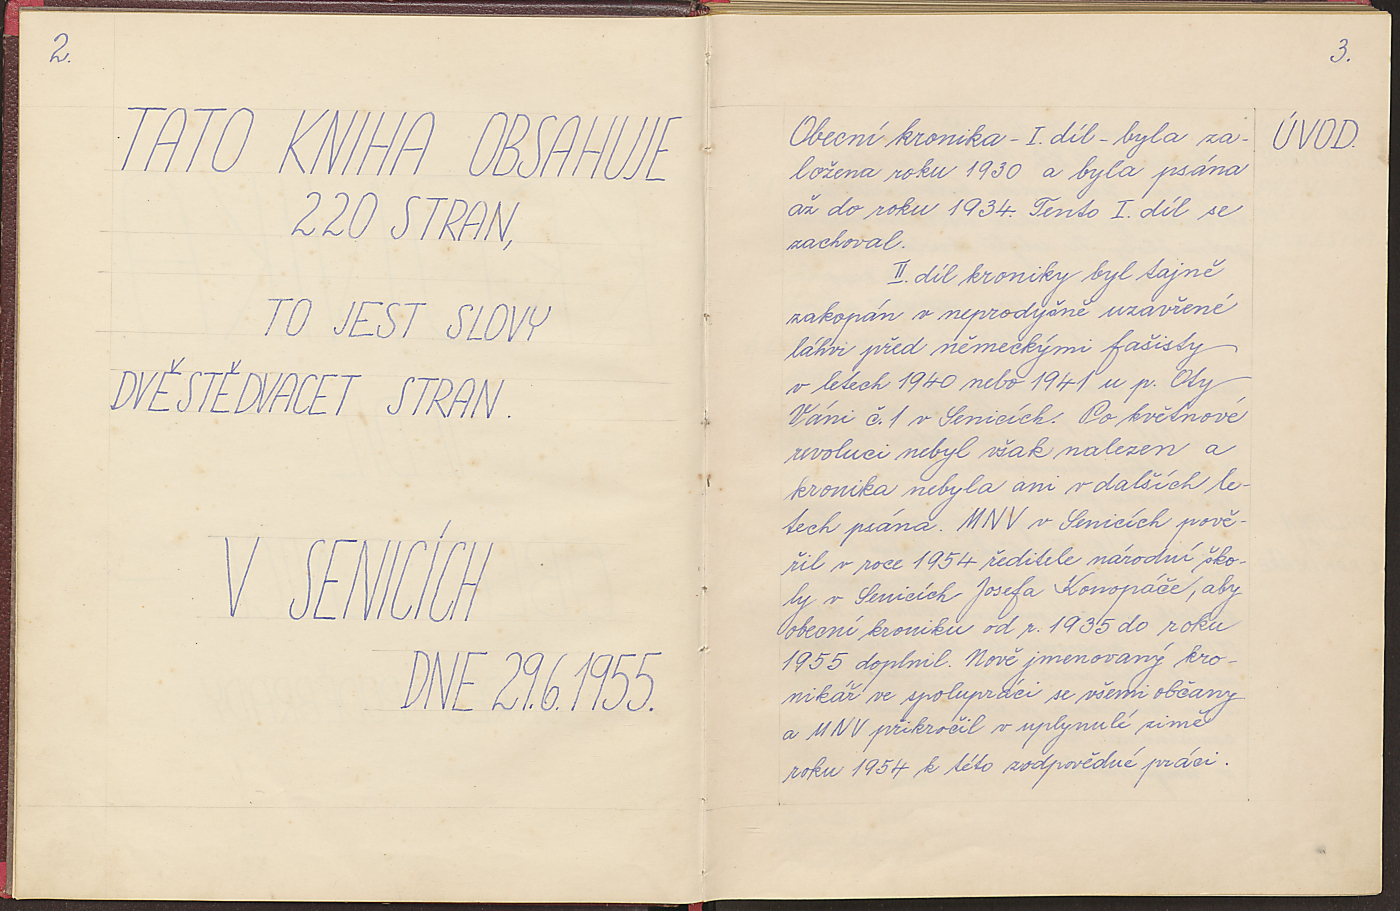 2.
TATO KNIHA OBSAHUJE
220 STRAN,
TO JEST SLOVY
DVĚSTĚDVACET STRAN.
V SENICÍCH
DNE 29.6.1955.
3.
ÚVOD.
Obecní kronika - I. díl - byla za-
ložena roku 1930 a byla psána
až do roku 1934. Tento I. díl se
zachoval.
II. díl kroniky byl tajně
zakopán v neprodyšně uzavřené
láhvi před německými fašisty
v letech 1940 nebo 1941 u p. Oty
Váni č. 1 v Senicích. Po květnové
revoluci nebyl však nalezen a
kronika nebyla ani v dalších le-
tech psána. MNV v Senicích pově-
řil v roce 1954 ředitele národní ško-
ly v Senicích Josefa Konopáče, aby
obecní kroniku od r. 1935 do roku
1955 doplnil. Nově jmenovaný kro-
nikář ve spolupráci se všemi občany
a MNV přikročil v uplynulé zimě
roku 1954 k této zodpovědné práci.